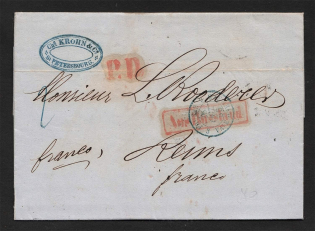 Gd. KROHN & Co.
St. PETERSBOURG
P.D.
Monsieur L. Roederer
Aus Russland
franco,
Reims
france